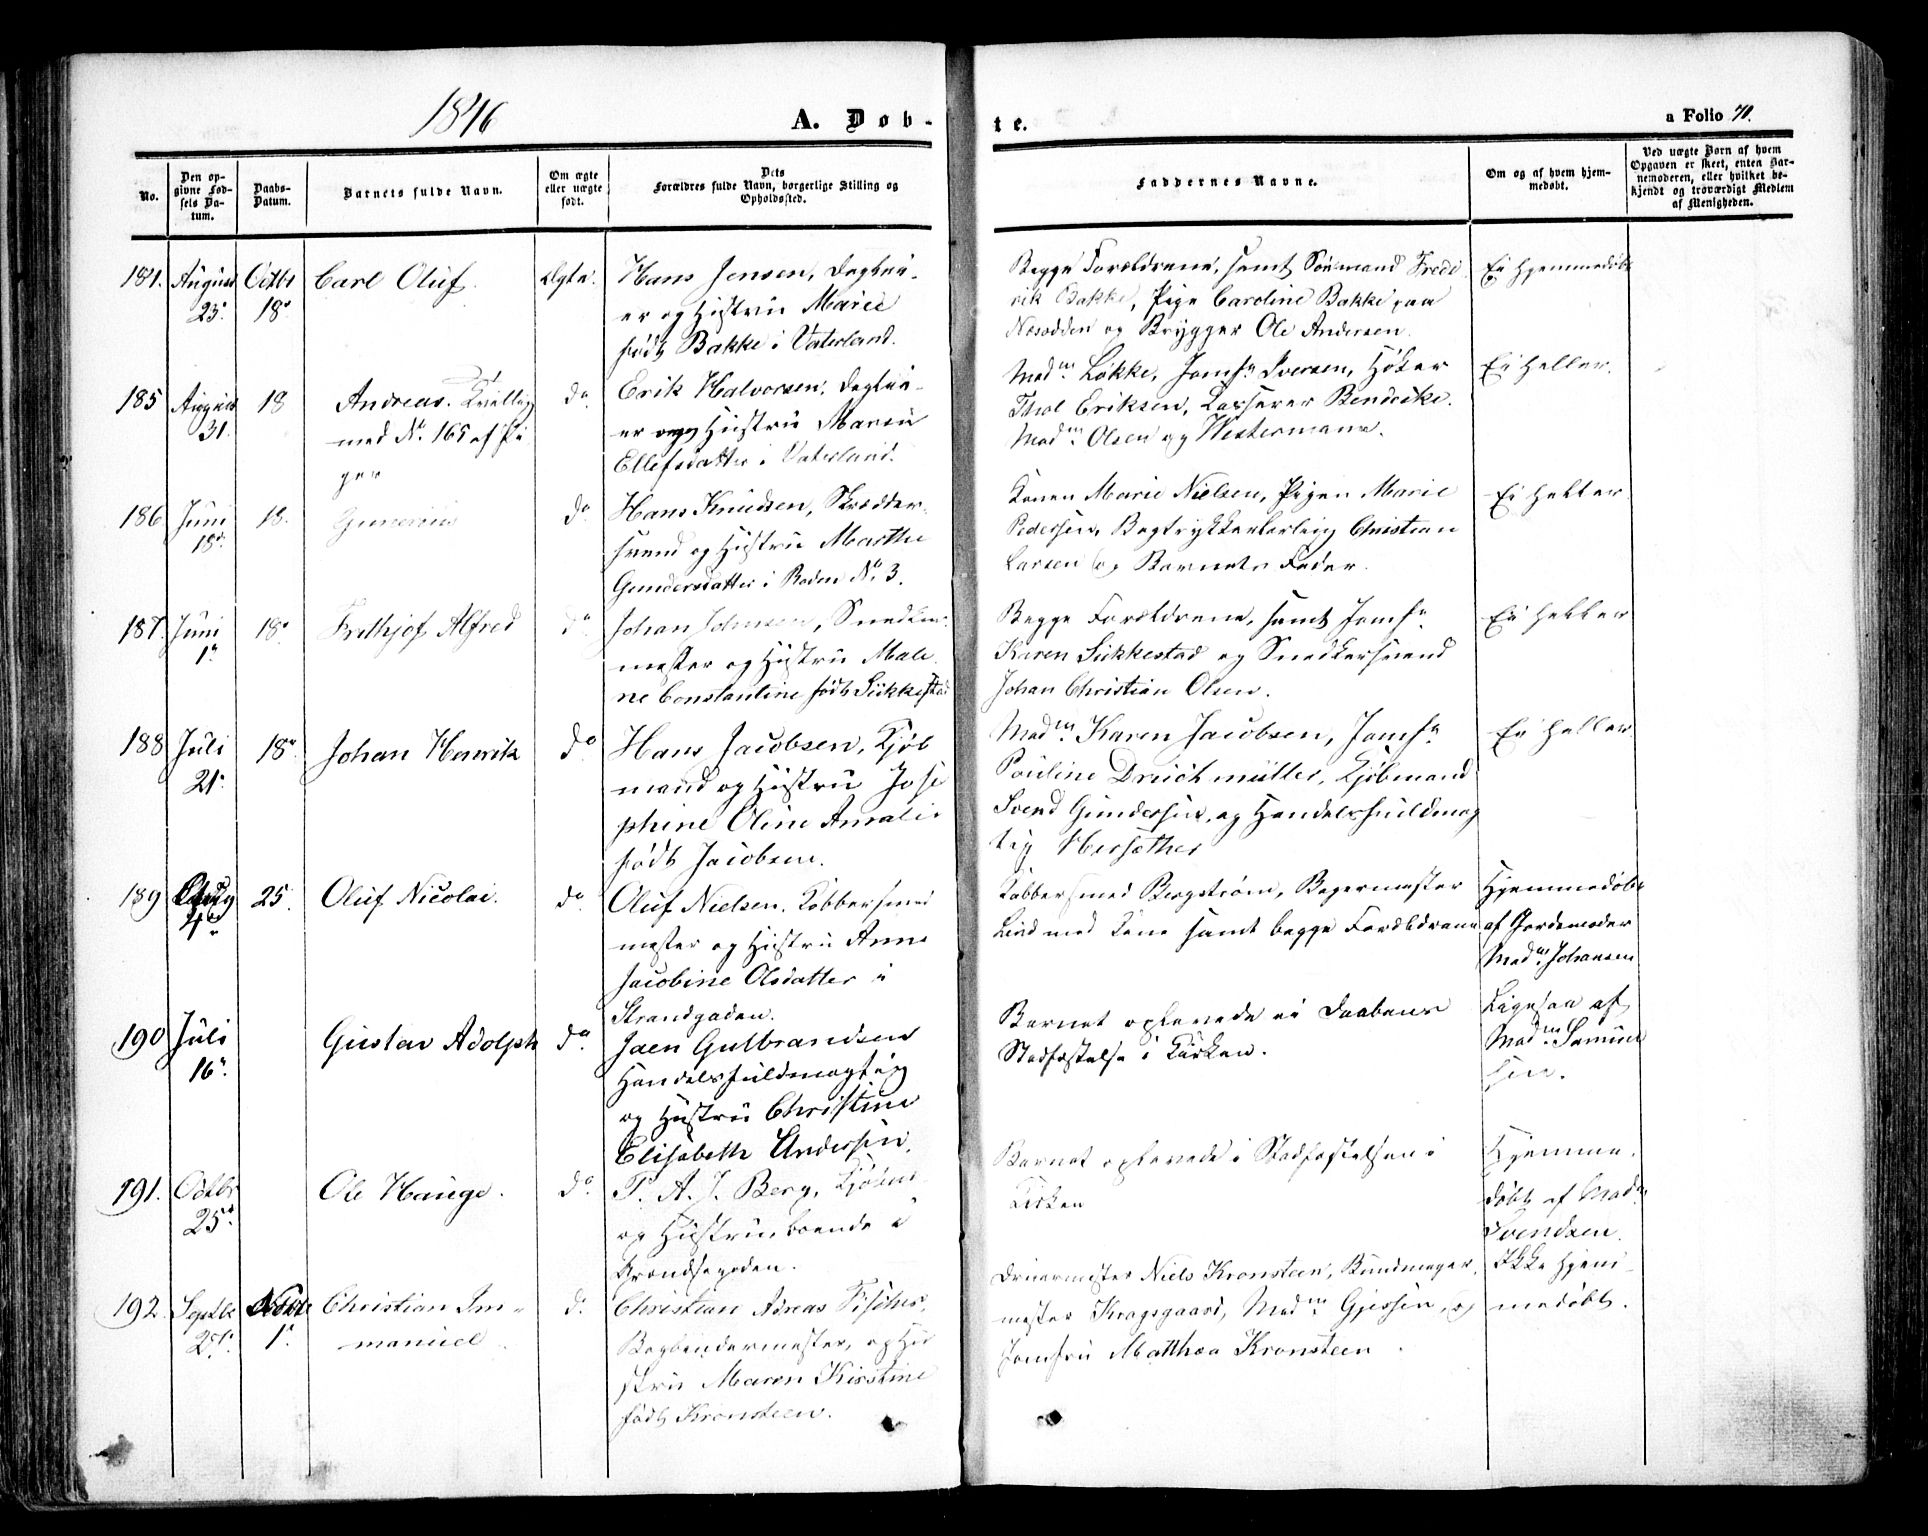 1846
A. Døb-
te.
a Folio 71.
No.
Den opgivne Fødsels Datum.
Daabs-Datum.
Barnets fulde Navn.
Om ægte eller uægte født.
Dets
Forældres fulde Navn, borgerlige Stilling og
Opholdssted.
Faddernes Navne.
Om og af hvem hjemmedøbt.
Ved uægte Børn af hvem
Opgaven er skeet, enten Barnemoderen, eller hvilket bekjendt og troværdigt Medlem
af Menigheden.
184. August Octbr Carl Oluf. Ægte. Hans Jensen, Dagleier og Hustru Marie født Bakke i Vaterland.
23. 18
Begge Forældrene, samt Sømand Frede
rik Bakke, Pige Caroline Bakke paa
Næsodden og Brygger Ole Andersen.
Ei hjemmedøbt
185 August 18 Andreas. Tvilling
31.
med No 165 af Pi
ger
do
Erik Halvorsen, Dagleier og Hustru Maren
Ellefsdatter i Vaterland.
Madm Løkke, Jomfr Iversen, Høker
Thol Eriksen, Bendicke.
Madm Olsen og Westermann.
Ei heller.
186 Juni 18. Gunerius do
18
Hans Knudsen, Skrædder
svend og Hustru Marthe
Gundersdatter i Roden No 3.
Konen Marie Nielsen, Pigen Marie
Pedersen, Bogtrykkerlærling Christian
Larsen og Barnets Fader.
Ei heller
187. Juni 18 Fridthjof Alfred do
1
Johan Johnsen, Snedker
mester og Hustru Male
ne Constantine født Sikkestad
Begge Forældrene, samt Jomfr
Karen Sikkestad og Snedkersvend
Johan Christian Olsen.
Ei heller
188 Juli 18 Johan Henrik do
21
Hans Jacobsen, Kjøb
mand og Hustru Jose
phine Oline Amalie
født Jacobsen.
Madm Karen Jacobsen, Jomfr
Pauline Kjøbmand
Svend Gundersen, og Handelsfuldmæg
tig
Ei heller
189 25. Oluf Nicolai. do
4
Oluf Nielsen, Kobbersmed
mester og Hustru Anne
Jacobine Olsdatter i
Strandgaden.
Kobbersmed Bergstrøm, Bagermester
Lind med Kone samt begge Forældrene
Hjemmedøbt
af Jordemoder
Madm Johansen
190 Juli Gustav Adolph do
16
Jaen Gulbrandsen
Handelsfuldmægtig
og Hustru Christine
Elisabeth Andersen.
Barnet oplevede ei Daabens
Stadfæstelse i Kirken.
Ligesaa af
Madm Samuel
sen.
191. Octbr Ole Hauge. do
25
P. A. J. Berg, Kjøbmd
og Hustru, boende i
Grændsegaden.
Barnet oplevede i Stadfæstelsen i
Kirken
Hjemme
døbt af Madm
Svendsen.
192. Septbr Novbr Christian Im-
27. 1
manuel
do
Christian Adreas Fischer
Bogbindermester, og Hu
stru Maren Kirstine
født Kronsteen.
Dreiermester Niels Kronsteen, Bundmager
mester Kragsgaard, Madm Gjessen, og
Jomfru Matthea Kronsteen
Ikke hjem-
medøbt.